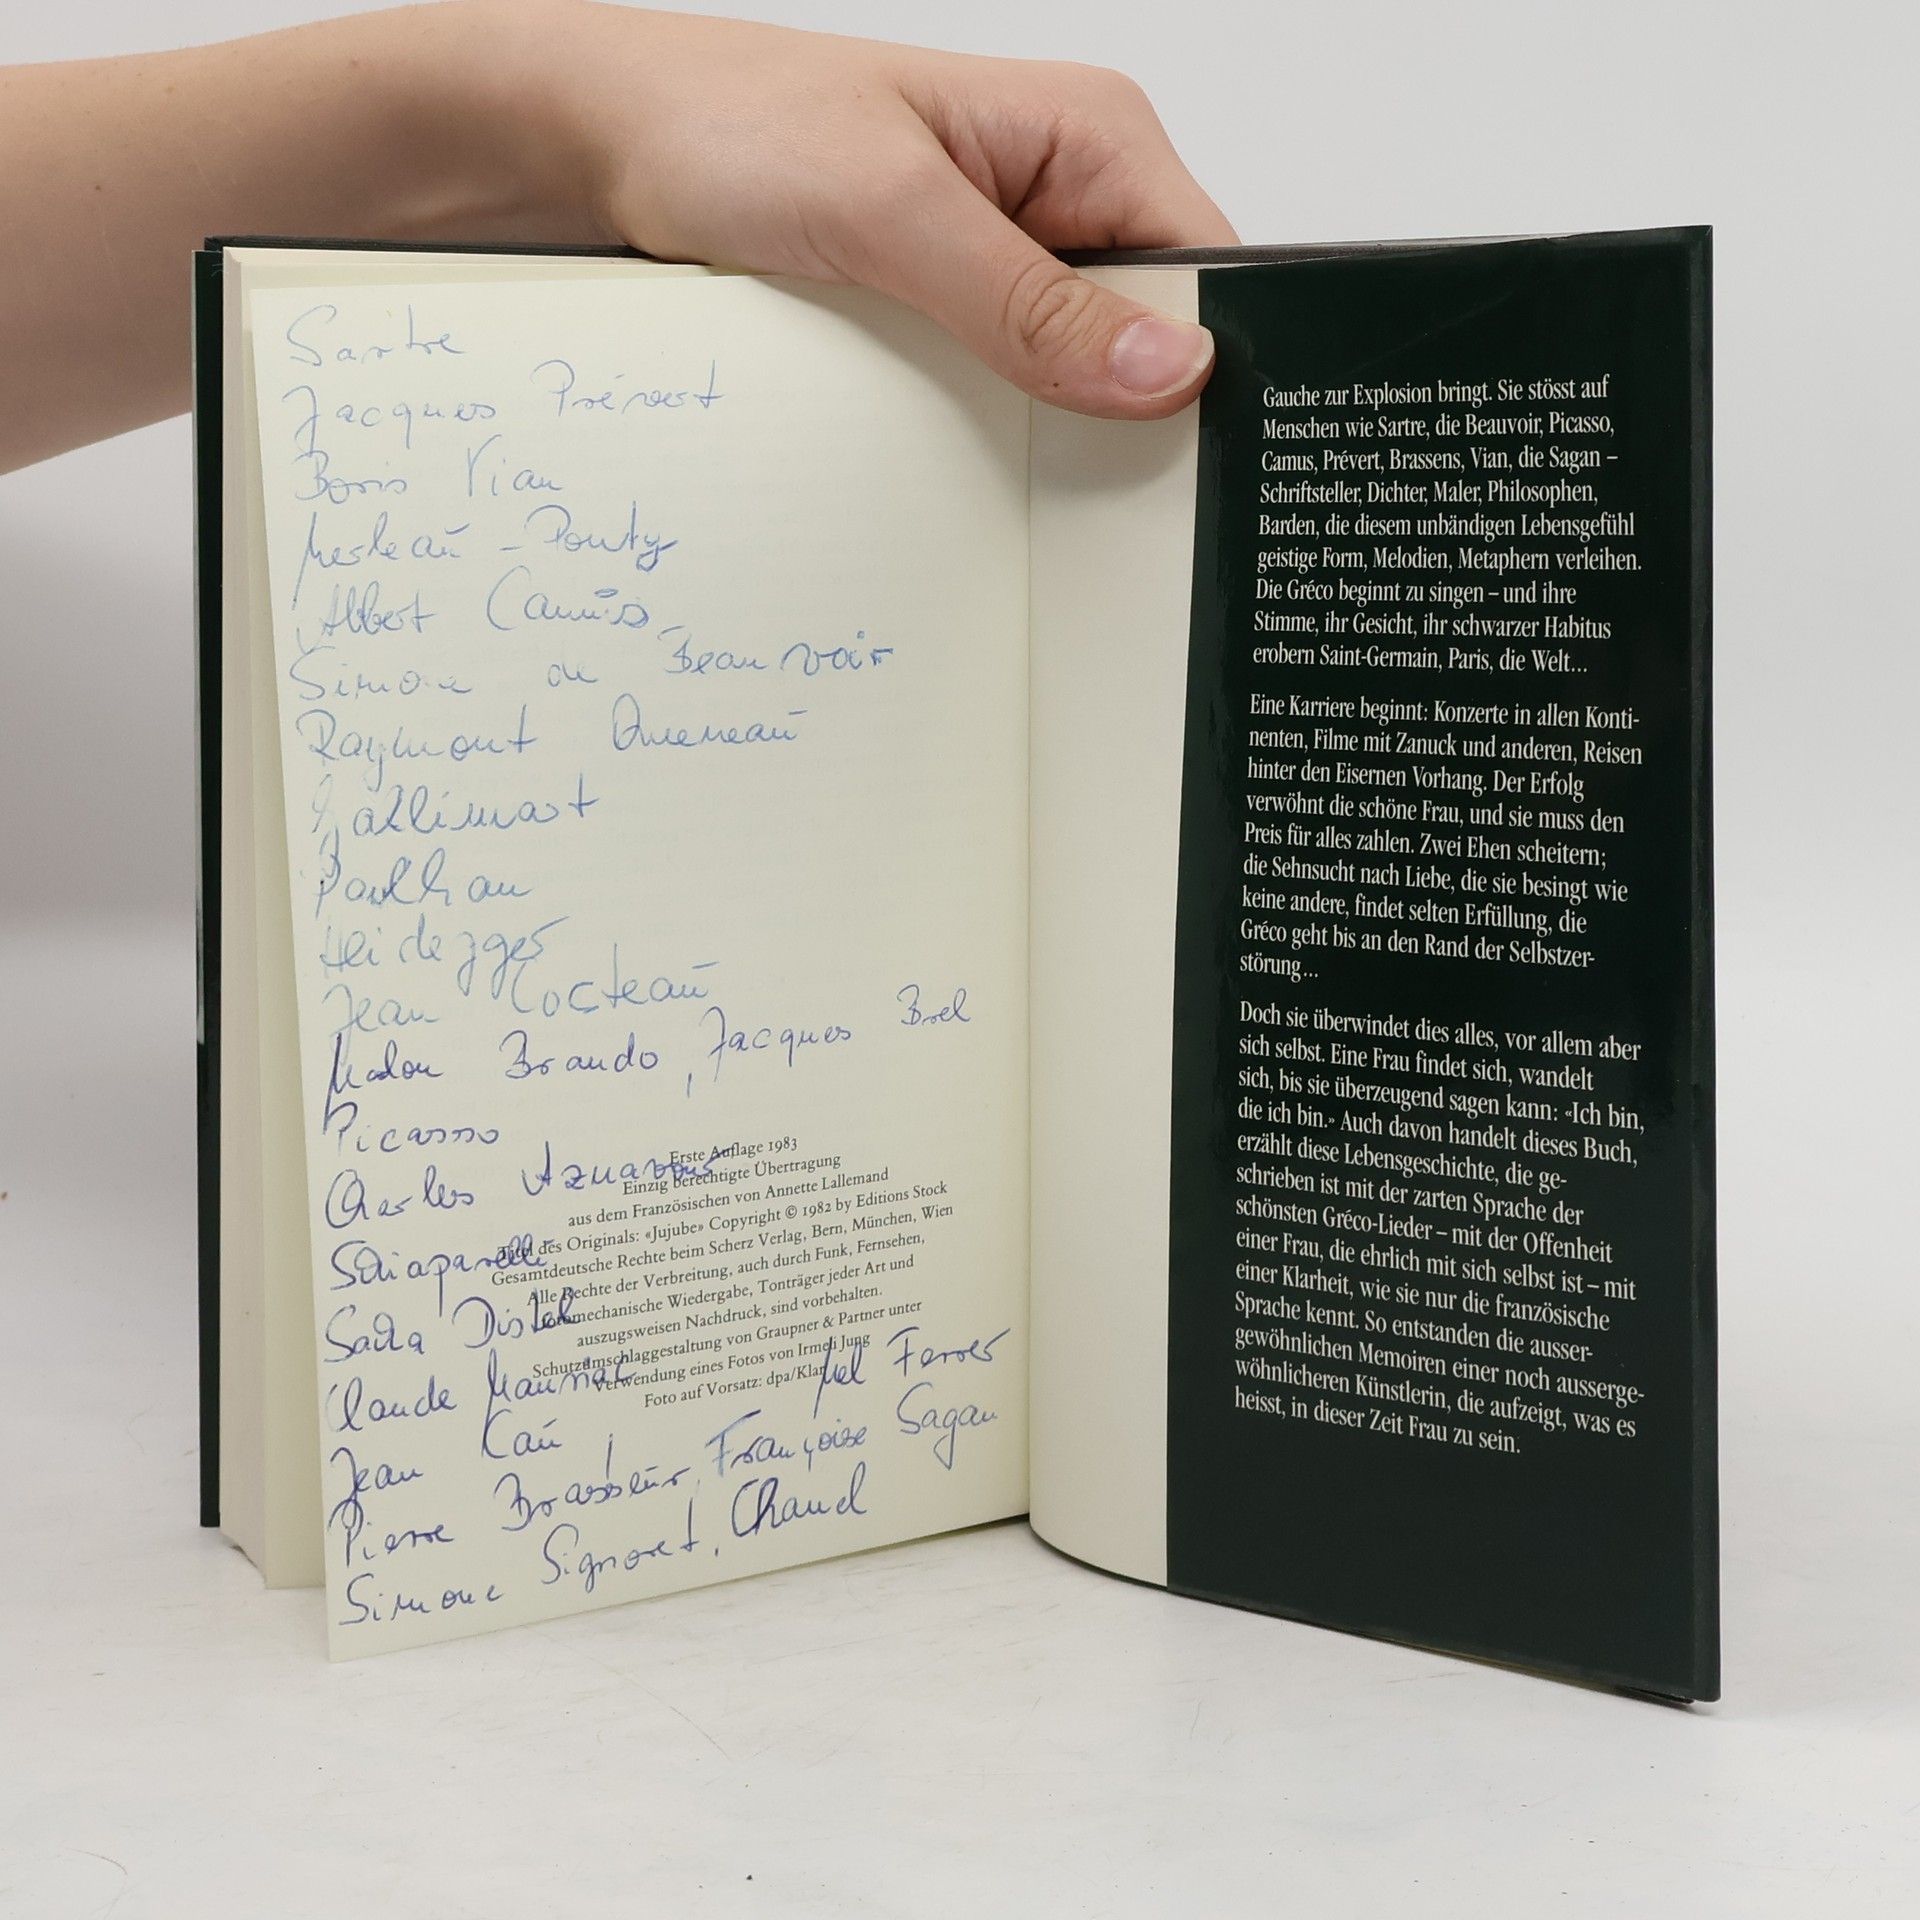 Sartre
Jacques Prévert
Boris Vian
Merleaŭ-Ponty
Albert Camŭs
Simone de Beauvoir
Raymont Queneaŭ
Gallimart
Paulhan
Heidegger
Jean Cocteaŭ
Malon Brando, Jacques Brel
Picasso
Charles Aznavour
Schiaparelli
Sacha Distel
Claude Mauriac
Mel Ferrer
Jean Caŭ,
Pierre Brasseŭr, Françoise Sagan
Simone Signoret, Chanel
Erste Auflage 1983
Einzig berechtigte Übertragung
aus dem Französischen von Annette Lallemand
Titel des Originals: «Jujube» Copyright © 1982 by Editions Stock
Gesamtdeutsche Rechte beim Scherz Verlag, Bern, München, Wien
Alle Rechte der Verbreitung, auch durch Funk, Fernsehen,
fotomechanische Wiedergabe, Tonträger jeder Art und
auszugsweisen Nachdruck, sind vorbehalten.
Schutzumschlaggestaltung von Graupner & Partner unter
Verwendung eines Fotos von Irmeli Jung
Foto auf Vorsatz: dpa/Klar
Gauche zur Explosion bringt. Sie stösst auf
Menschen wie Sartre, die Beauvoir, Picasso,
Camus, Prévert, Brassens, Vian, die Sagan –
Schriftsteller, Dichter, Maler, Philosophen,
Barden, die diesem unbändigen Lebensgefühl
geistige Form, Melodien, Metaphern verleihen.
Die Gréco beginnt zu singen – und ihre
Stimme, ihr Gesicht, ihr schwarzer Habitus
erobern Saint-Germain, Paris, die Welt...
Eine Karriere beginnt: Konzerte in allen Konti-
nenten, Filme mit Zanuck und anderen, Reisen
hinter den Eisernen Vorhang. Der Erfolg
verwöhnt die schöne Frau, und sie muss den
Preis für alles zahlen. Zwei Ehen scheitern;
die Sehnsucht nach Liebe, die sie besingt wie
keine andere, findet selten Erfüllung, die
Gréco geht bis an den Rand der Selbstzer-
störung...
Doch sie überwindet dies alles, vor allem aber
sich selbst. Eine Frau findet sich, wandelt
sich, bis sie überzeugend sagen kann: «Ich bin,
die ich bin.» Auch davon handelt dieses Buch,
erzählt diese Lebensgeschichte, die ge-
schrieben ist mit der zarten Sprache der
schönsten Gréco-Lieder – mit der Offenheit
einer Frau, die ehrlich mit sich selbst ist – mit
einer Klarheit, wie sie nur die französische
Sprache kennt. So entstanden die ausser-
gewöhnlichen Memoiren einer noch ausserge-
wöhnlicheren Künstlerin, die aufzeigt, was es
heisst, in dieser Zeit Frau zu sein.